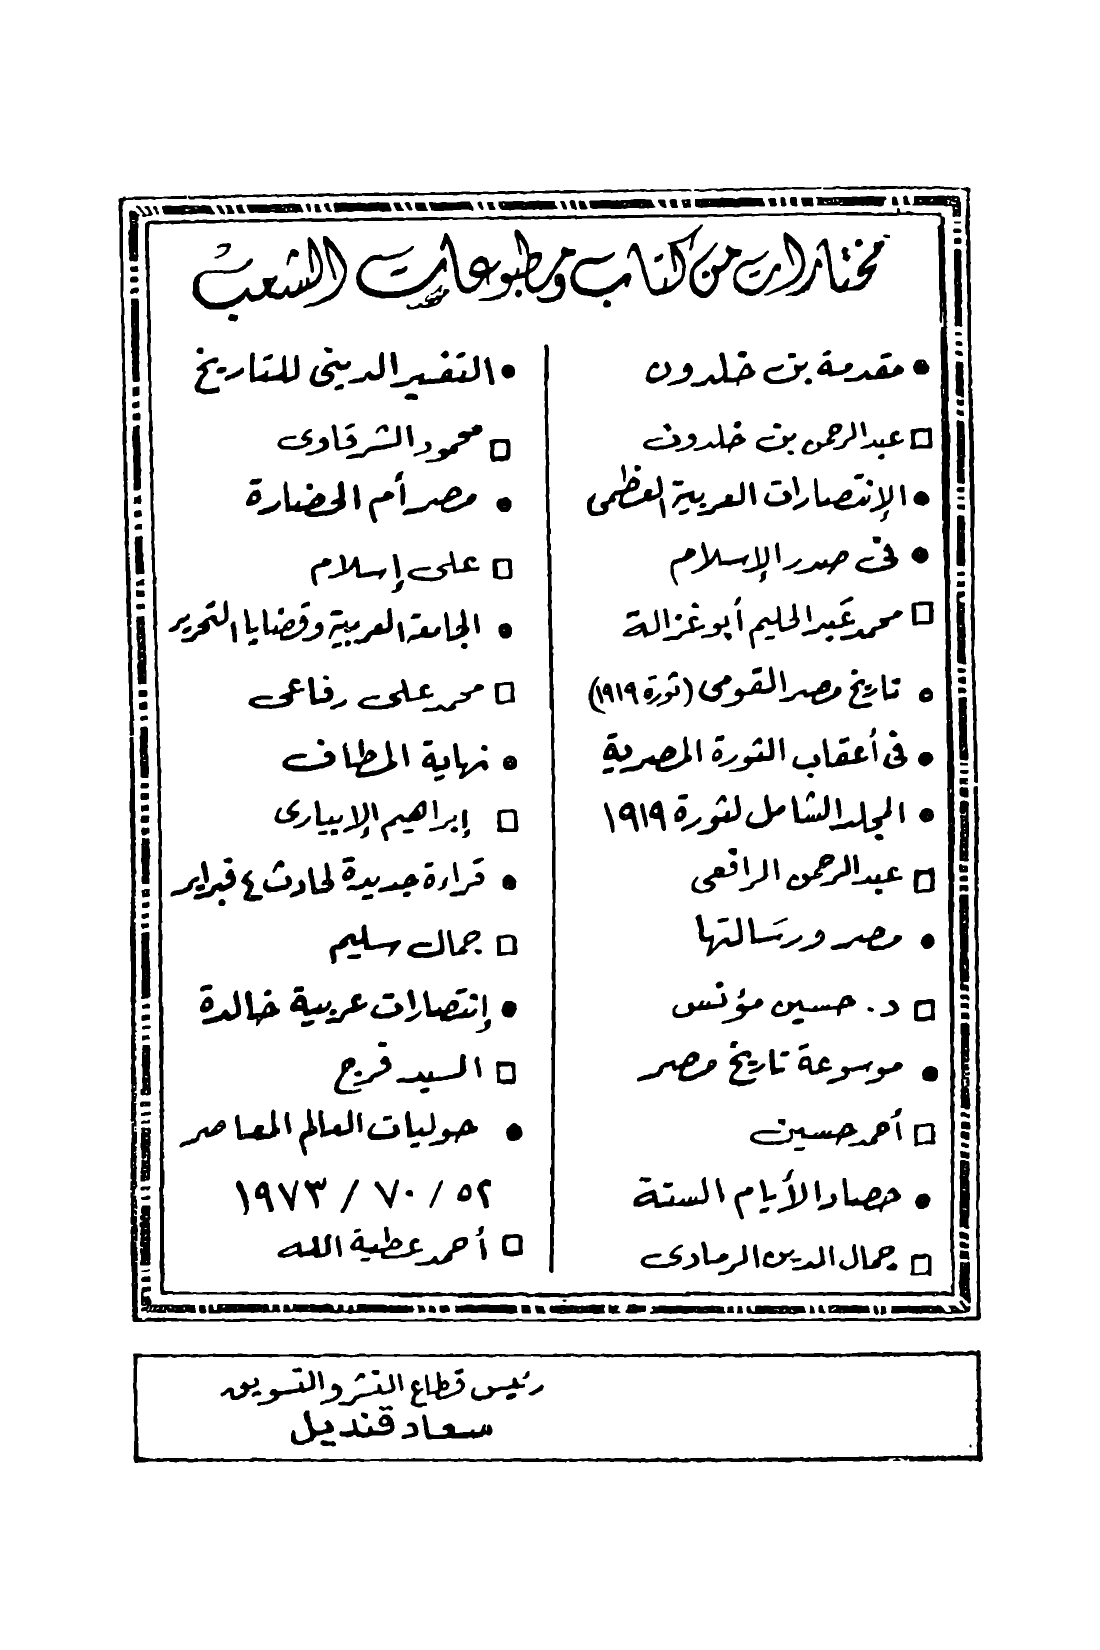 مختارات من كتاب ومطبوعات الشعب
• مقدمة بن خلدون
□ عبد الرحمن بن خلدون
• الإنتصارات العربية العظمى
• فى صدر الإسلام
□ محمد عبد الحليم أبو غزالة
• تاريخ مصر القومى (ثورة ١٩١٩)
• فى أعقاب الثورة المصرية
• المجلد الشامل لثورة ١٩١٩
□ عبد الرحمن الرافعى
• مصر ورسالتها
□ د. حسين مؤنس
• موسوعة تاريخ مصر
□ أحمد حسين
• حصاد الأيام الستة
□ جمال الدين الرمادى
• التفسير الدينى للتاريخ
□ محمود الشرقاوى
• مصر أم الحضارة
□ على إسلام
• الجامعة العربية وقضايا التحرير
□ محمد على رفاعى
• نهاية المطاف
□ إبراهيم الإبيارى
• قراءة جديدة لحادث ٤ فبراير
□ جمال سليم
• إنتصارات عربية خالدة
□ السيد فرج
• حوليات العالم المعاصر
٥٢ / ٧٠ / ١٩٧٣
□ أحمد عطية الله
رئيس قطاع النشر والتسويق
سعاد قنديل